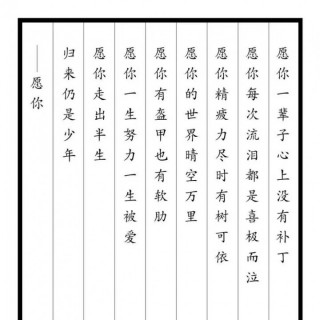 愿你一辈子心上没有补丁
愿你每次流泪都是喜极而泣
愿你精疲力尽时有树可依
愿你的世界晴空万里
愿你有盔甲也有软肋
愿你一生努力一生被爱
愿你走出半生
归来仍是少年
——愿你